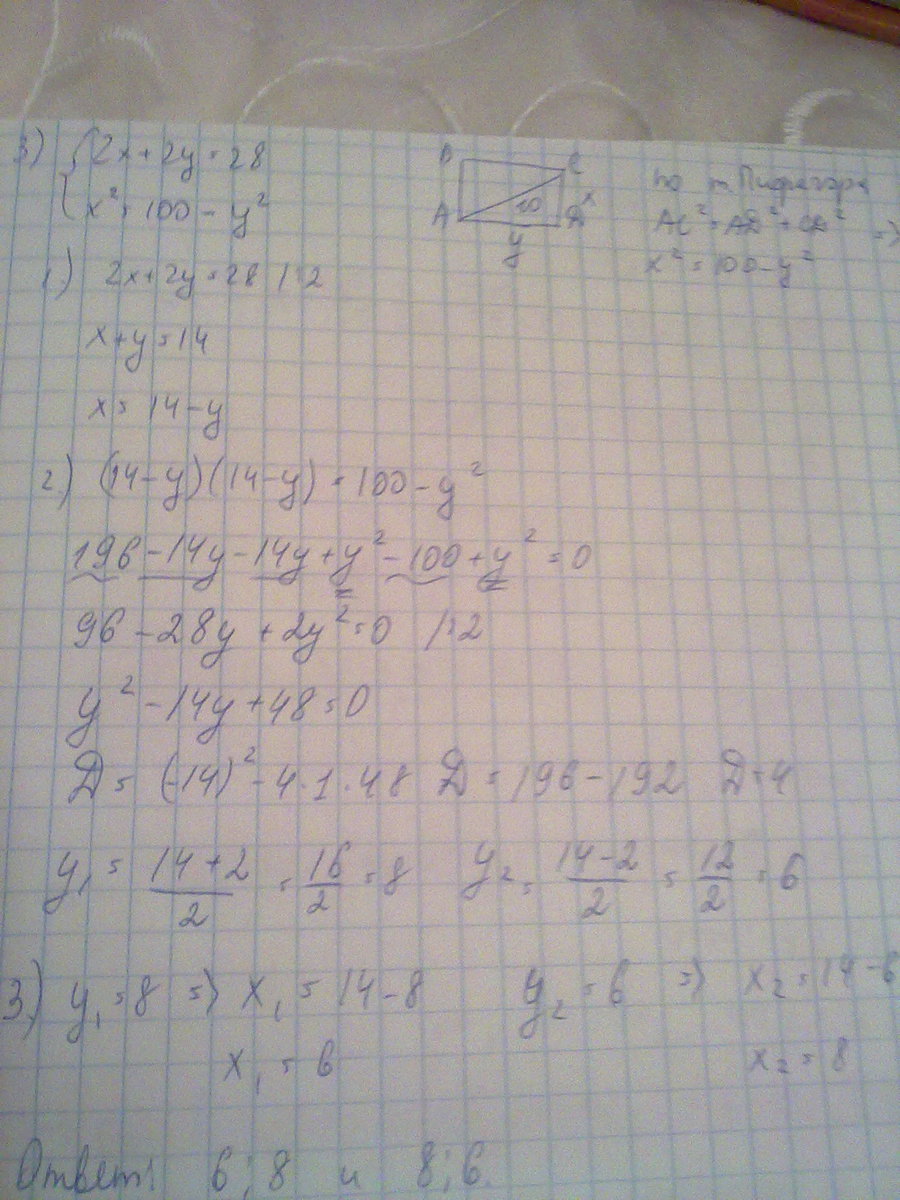 3) { 2x + 2y = 28
x² = 100 - y²
B C
A 10 D x
y
по т. Пифагора
AC² = AD² + CD² =>
x² = 100 - y²
1) 2x + 2y = 28 /:2
x + y = 14
x = 14 - y
2) (14 - y)(14 - y) = 100 - y²
196 - 14y - 14y + y² - 100 + y² = 0
96 - 28y + 2y² = 0 /:2
y² - 14y + 48 = 0
D = (-14)² - 4·1·48 D = 196 - 192 D = 4
y₁ = (14 + 2)/2 = 16/2 = 8 y₂ = (14 - 2)/2 = 12/2 = 6
3) y₁ = 8 => x₁ = 14 - 8 y₂ = 6 => x₂ = 14 - 6
x₁ = 6 x₂ = 8
Ответ: 6; 8 и 8; 6.